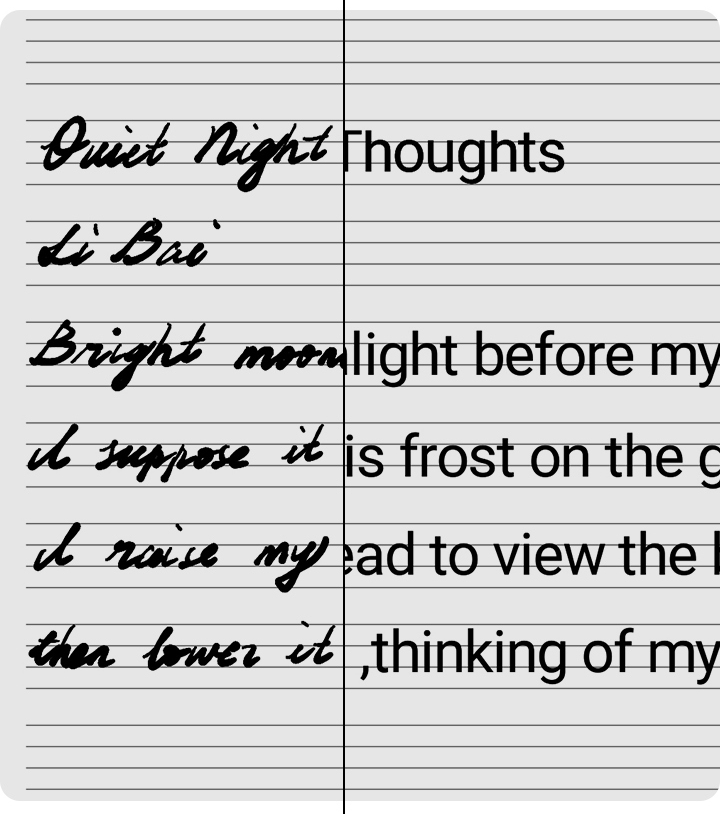 Quiet Night Thoughts
Li Bai
Bright moonlight before my
I suppose it is frost on the g
I raise my ead to view the b
then lower it ,thinking of my